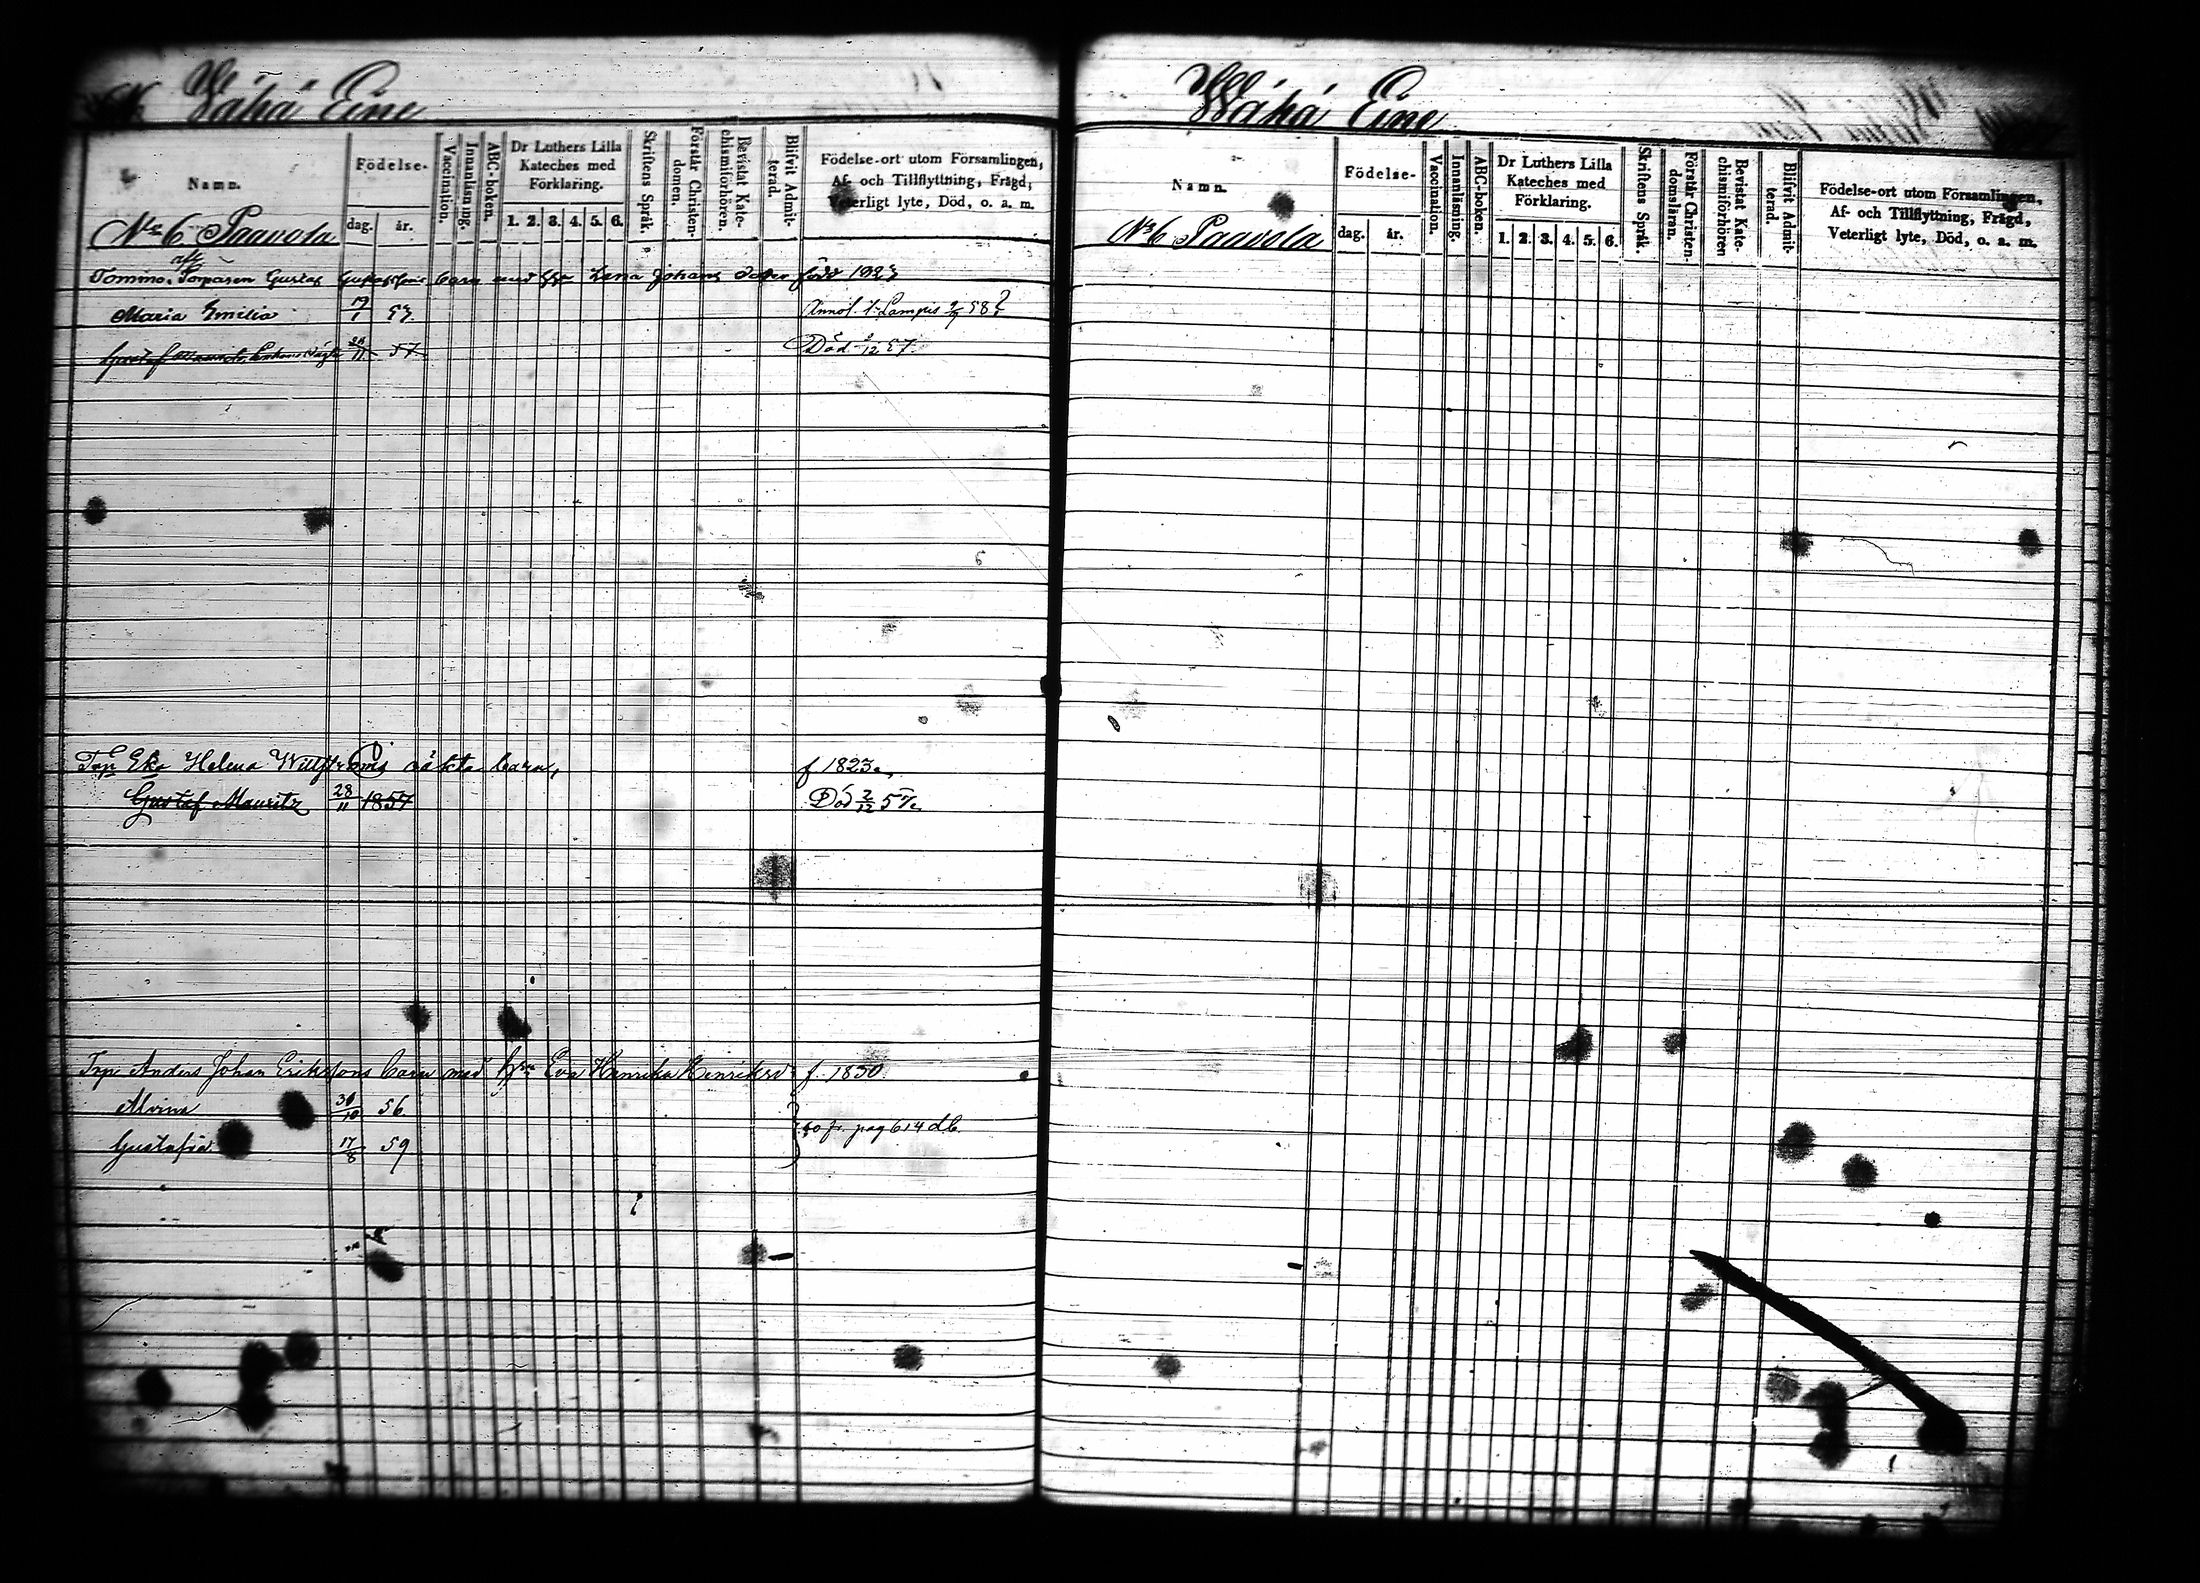 Wähä Eine
Namn.
Födelse-
dag.
år.
Vaccination.
Innanläsning.
ABC-boken.
Dr Luthers Lilla
Kateches med
Förklaring.
1. 2. 3. 4. 5. 6.
Skriftens Språk.
Förstår Christen-
domen.
Bevistat Kate-
chismiförhören.
Blifvit Admit-
terad.
Födelse-ort utom Församlingen,
Af- och Tillflyttning, Frägd,
Veterligt lyte, Död, o. a. m.
No 6 Paavola
afl
Torparen Gustaf Gustafssons barn med Lena Johans dotter född
Maria Emilia 19/1 57 Lampis 58
Gustaf 28/11 57 Död 2/12 57.
Helena oäkta barn, f 1823.
Gustaf Mauritz 28/11 1857 Död 2/12 57.
Torp Anders Johan Erikssons barn med Hu Eva Henrika Henriksd f. 1830.
Alvina 30/10 56
Gustafva 17/8 59
fr. pag 614 db.
Wähä Eine
Namn.
Födelse-
dag.
år.
Vaccination.
Innanläsning.
ABC-boken.
Dr Luthers Lilla
Kateches med
Förklaring.
1. 2. 3. 4. 5. 6.
Skriftens Språk.
Förstår Christen-
domsläran.
Bevistat Kate-
chismiförhören
Blifvit Admit-
terad.
Födelse-ort utom Församlingen,
Af- och Tillflyttning, Frägd,
Veterligt lyte, Död, o. a. m.
No 6 Paavola